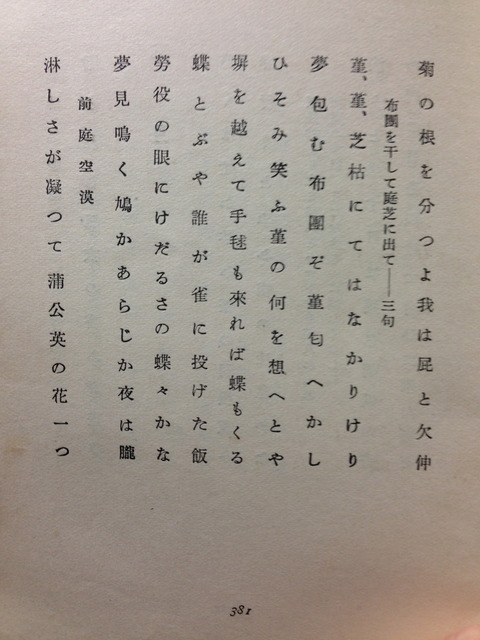 菊の根を分つよ我は屁と欠伸
布團を干して庭芝に出て――三句
菫、菫、芝枯にてはなかりけり
夢包む布團ぞ菫匂へかし
ひそみ笑ふ菫の何を想へとや
塀を越えて手毬も來れば蝶もくる
蝶とぶや誰が雀に投げた飯
勞役の眼にけだるさの蝶々かな
夢見鳴く鳩かあらじか夜は朧
前庭空漠
淋しさが凝つて蒲公英の花一つ
381